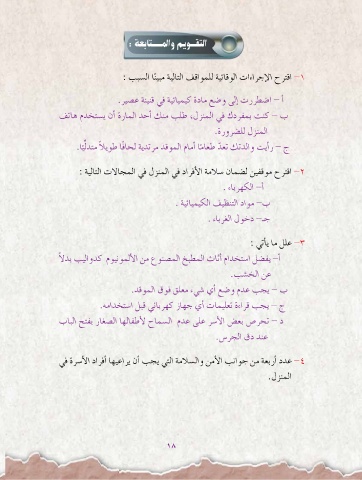 التقويم والمـــتابعة :
١- اقترح الإجراءات الوقائية للمواقف التالية مبينًا السبب :
أ - اضطررت إلى وضع مادة كيميائية في قنينة عصير.
ب - كنت بمفردك في المنزل، طلب منك أحد المارة أن يستخدم هاتف
المنزل للضرورة.
ج - رأيت والدتك تعدّ طعامًا أمام الموقد مرتدية لحافًا طويلاً متدليًا.
٢- اقترح موقفين لضمان سلامة الأفراد في المنزل في المجالات التالية :
أ- الكهرباء .
ب- مواد التنظيف الكيميائية .
جـ- دخول الغرباء .
٣- علل ما يأتي :
أ- يفضل استخدام أثاث المطبخ المصنوع من الألمونيوم كدواليب بدلاً
عن الخشب.
ب - يجب عدم وضع أي شيء معلق فوق الموقد.
ج- يجب قراءة تعليمات أي جهاز كهربائي قبل استخدامه.
د - تحرص بعض الأسر على عدم السماح لأطفالها الصغار بفتح الباب
عند دق الجرس.
٤- عدد أربعة من جوانب الأمن والسلامة التي يجب أن يراعيها أفراد الأسرة في
المنزل.
١٨